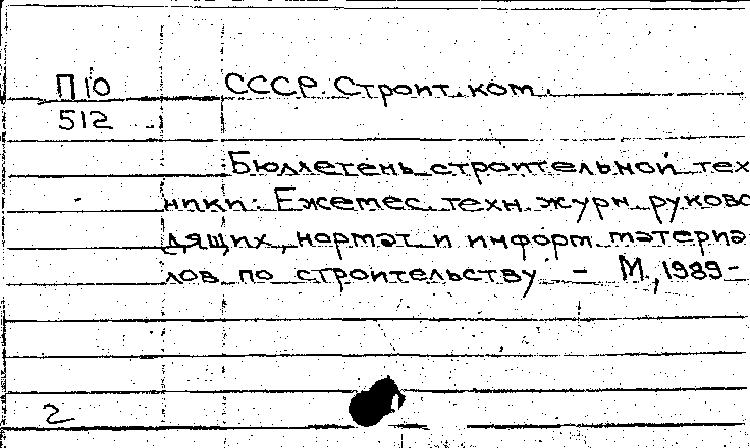 П10 СССР. Строит. ком.
512
Бюллетень строительной тех
ники: Ежемес. техн. журн. руково
дящих, нормат. и информ. материа
лов по строительству - М., 1989-
2